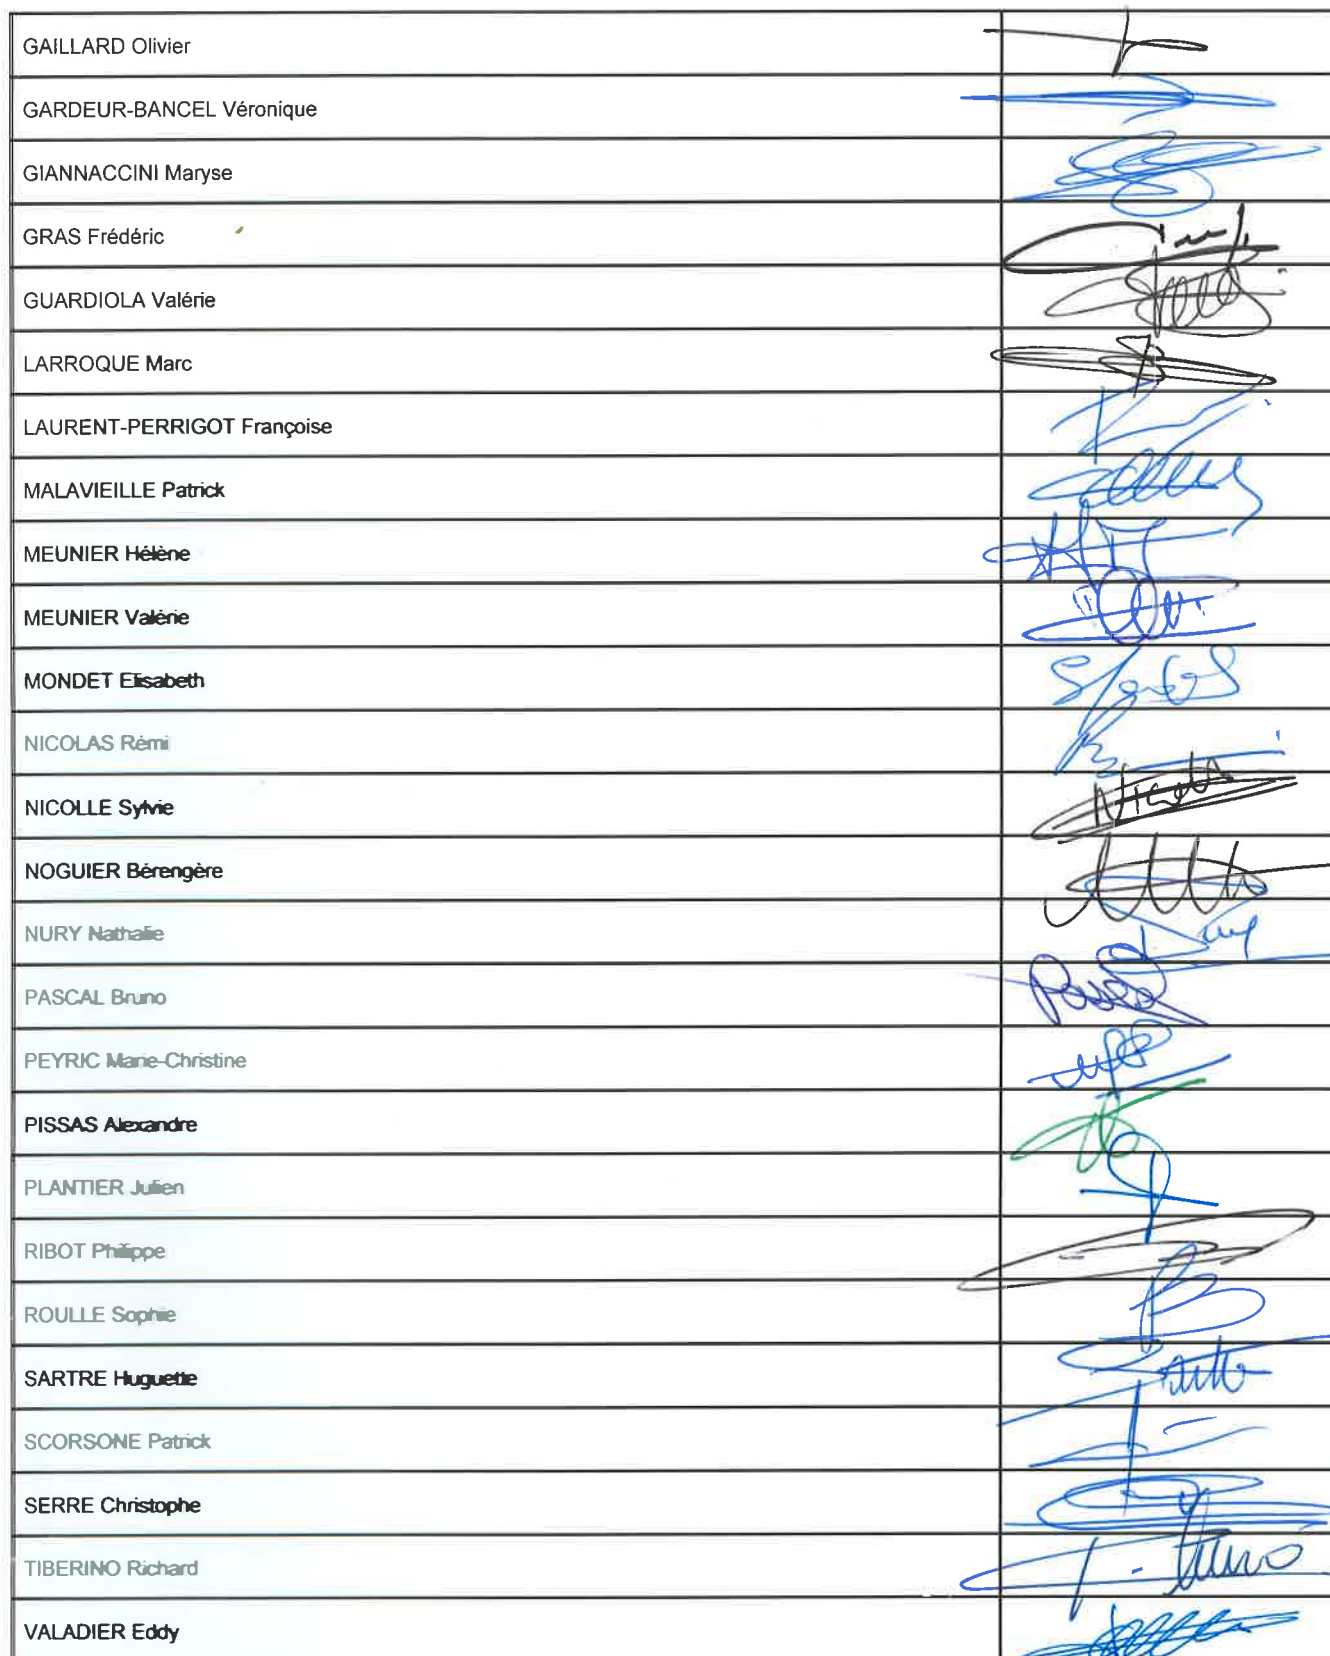 GAILLARD Olivier
GARDEUR-BANCEL Véronique
GIANNACCINI Maryse
GRAS Frédéric
GUARDIOLA Valérie
LARROQUE Marc
LAURENT-PERRIGOT Françoise
MALAVIEILLE Patrick
MEUNIER Hélène
MEUNIER Valérie
MONDET Elisabeth
NICOLAS Rémi
NICOLLE Sylvie
NOGUIER Bérengère
NURY Nathalie
PASCAL Bruno
PEYRIC Marie-Christine
PISSAS Alexandre
PLANTIER Julien
RIBOT Philippe
ROULLE Sophie
SARTRE Huguette
SCORSONE Patrick
SERRE Christophe
TIBERINO Richard
VALADIER Eddy